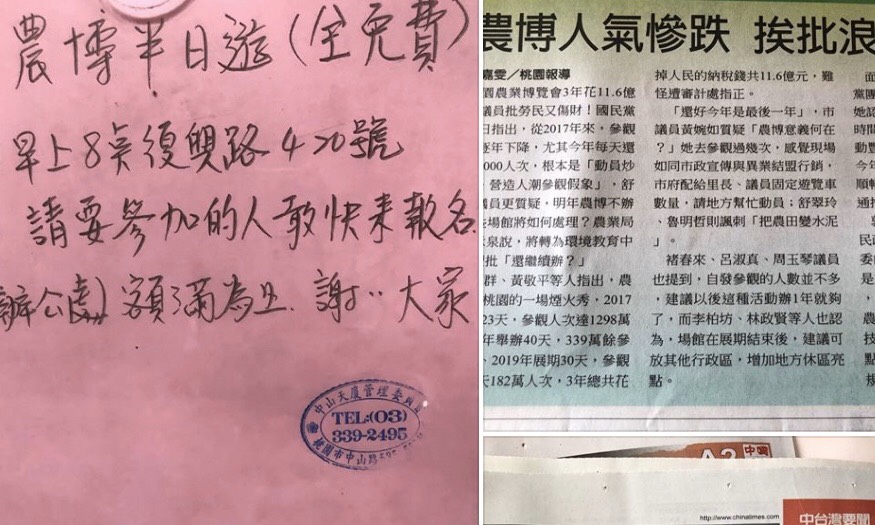 農博半日遊(全免費)
早上8點復興路420號
請要參加的人敢快來報名
辦公處)額滿為止.謝〃大家
中山大廈管理委員會
TEL:(03)
339-2495
桃園市中山路
農博人氣慘跌 挨批浪
嘉雯/桃園報導
園農業博覽會3年花11.6億
議員批勞民又傷財!國民黨
日指出,從2017年來,參觀
逐年下降,尤其今年每天還
000人次,根本是「動員炒
營造人潮參觀假象」,舒
議員更質疑,明年農博不辦
場館將如何處理?農業局
泉說,將轉為環境教育中
批「還繼續辦?」
群、黃敬平等人指出,農
桃園的一場煙火秀,2017
23天,參觀人次達1298萬
年舉辦40天,339萬餘參
、2019年展期30天,參觀
天182萬人次,3年總共花
掉人民的納稅錢共11.6億元,難
怪遭審計處指正。
「還好今年是最後一年」,市
議員黃婉如質疑「農博意義何在
?」她去參觀過幾次,感覺現場
如同市政宣傳與異業結盟行銷,
市府配給里長、議員固定遊覽車
數量,請地方幫忙動員;舒翠玲
、魯明哲則諷刺「把農田變水泥
」。
褚春來、呂淑真、周玉琴議員
也提到,自發參觀的人數並不多
,建議以後這種活動辦1年就夠
了,而李柏坊、林政賢等人也認
為,場館在展期結束後,建議可
放其他行政區,增加地方休區亮
點。
A2
http://www.chinatimes.com
中台灣要聞